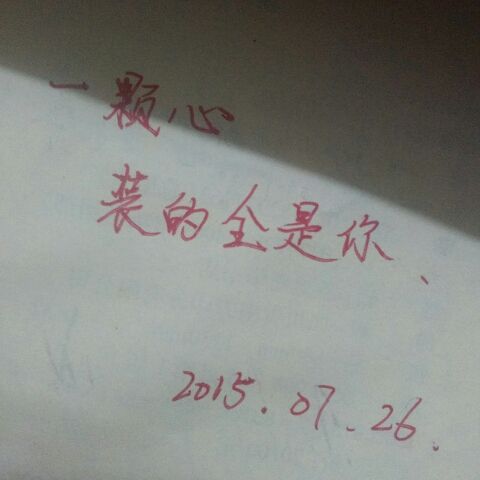 一颗心
装的全是你、
2015.07.26.